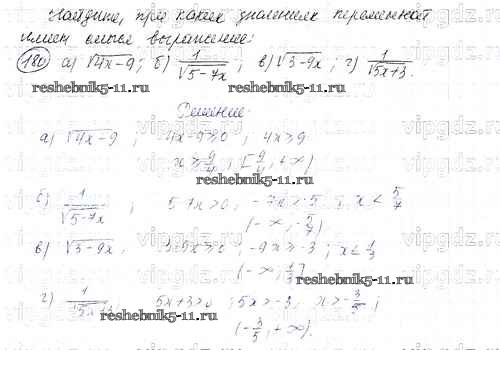 Найдите, при каких значениях переменной
имеет смысл выражение:
180 а) √4x-9; б) 1/√5-7x; в) √3-9x; г) 1/√5x+3.
reshebnik5-11.ru reshebnik5-11.ru
Решение:
а) √4x-9; 4x-9≥0, 4x≥9
x≥9/4, [9/4, +∞)
reshebnik5-11.ru
б) 1/√5-7x; 5-7x>0, -7x>-5; x<5/7
(-∞, 5/7)
в) √3-9x, 3-9x≥0, -9x≥-3; x≤1/3
(-∞, 1/3]
reshebnik5-11.ru
г) 1/√5x+3; 5x+3>0; 5x>-3, x>-3/5;
reshebnik5-11.ru
(-3/5, +∞).